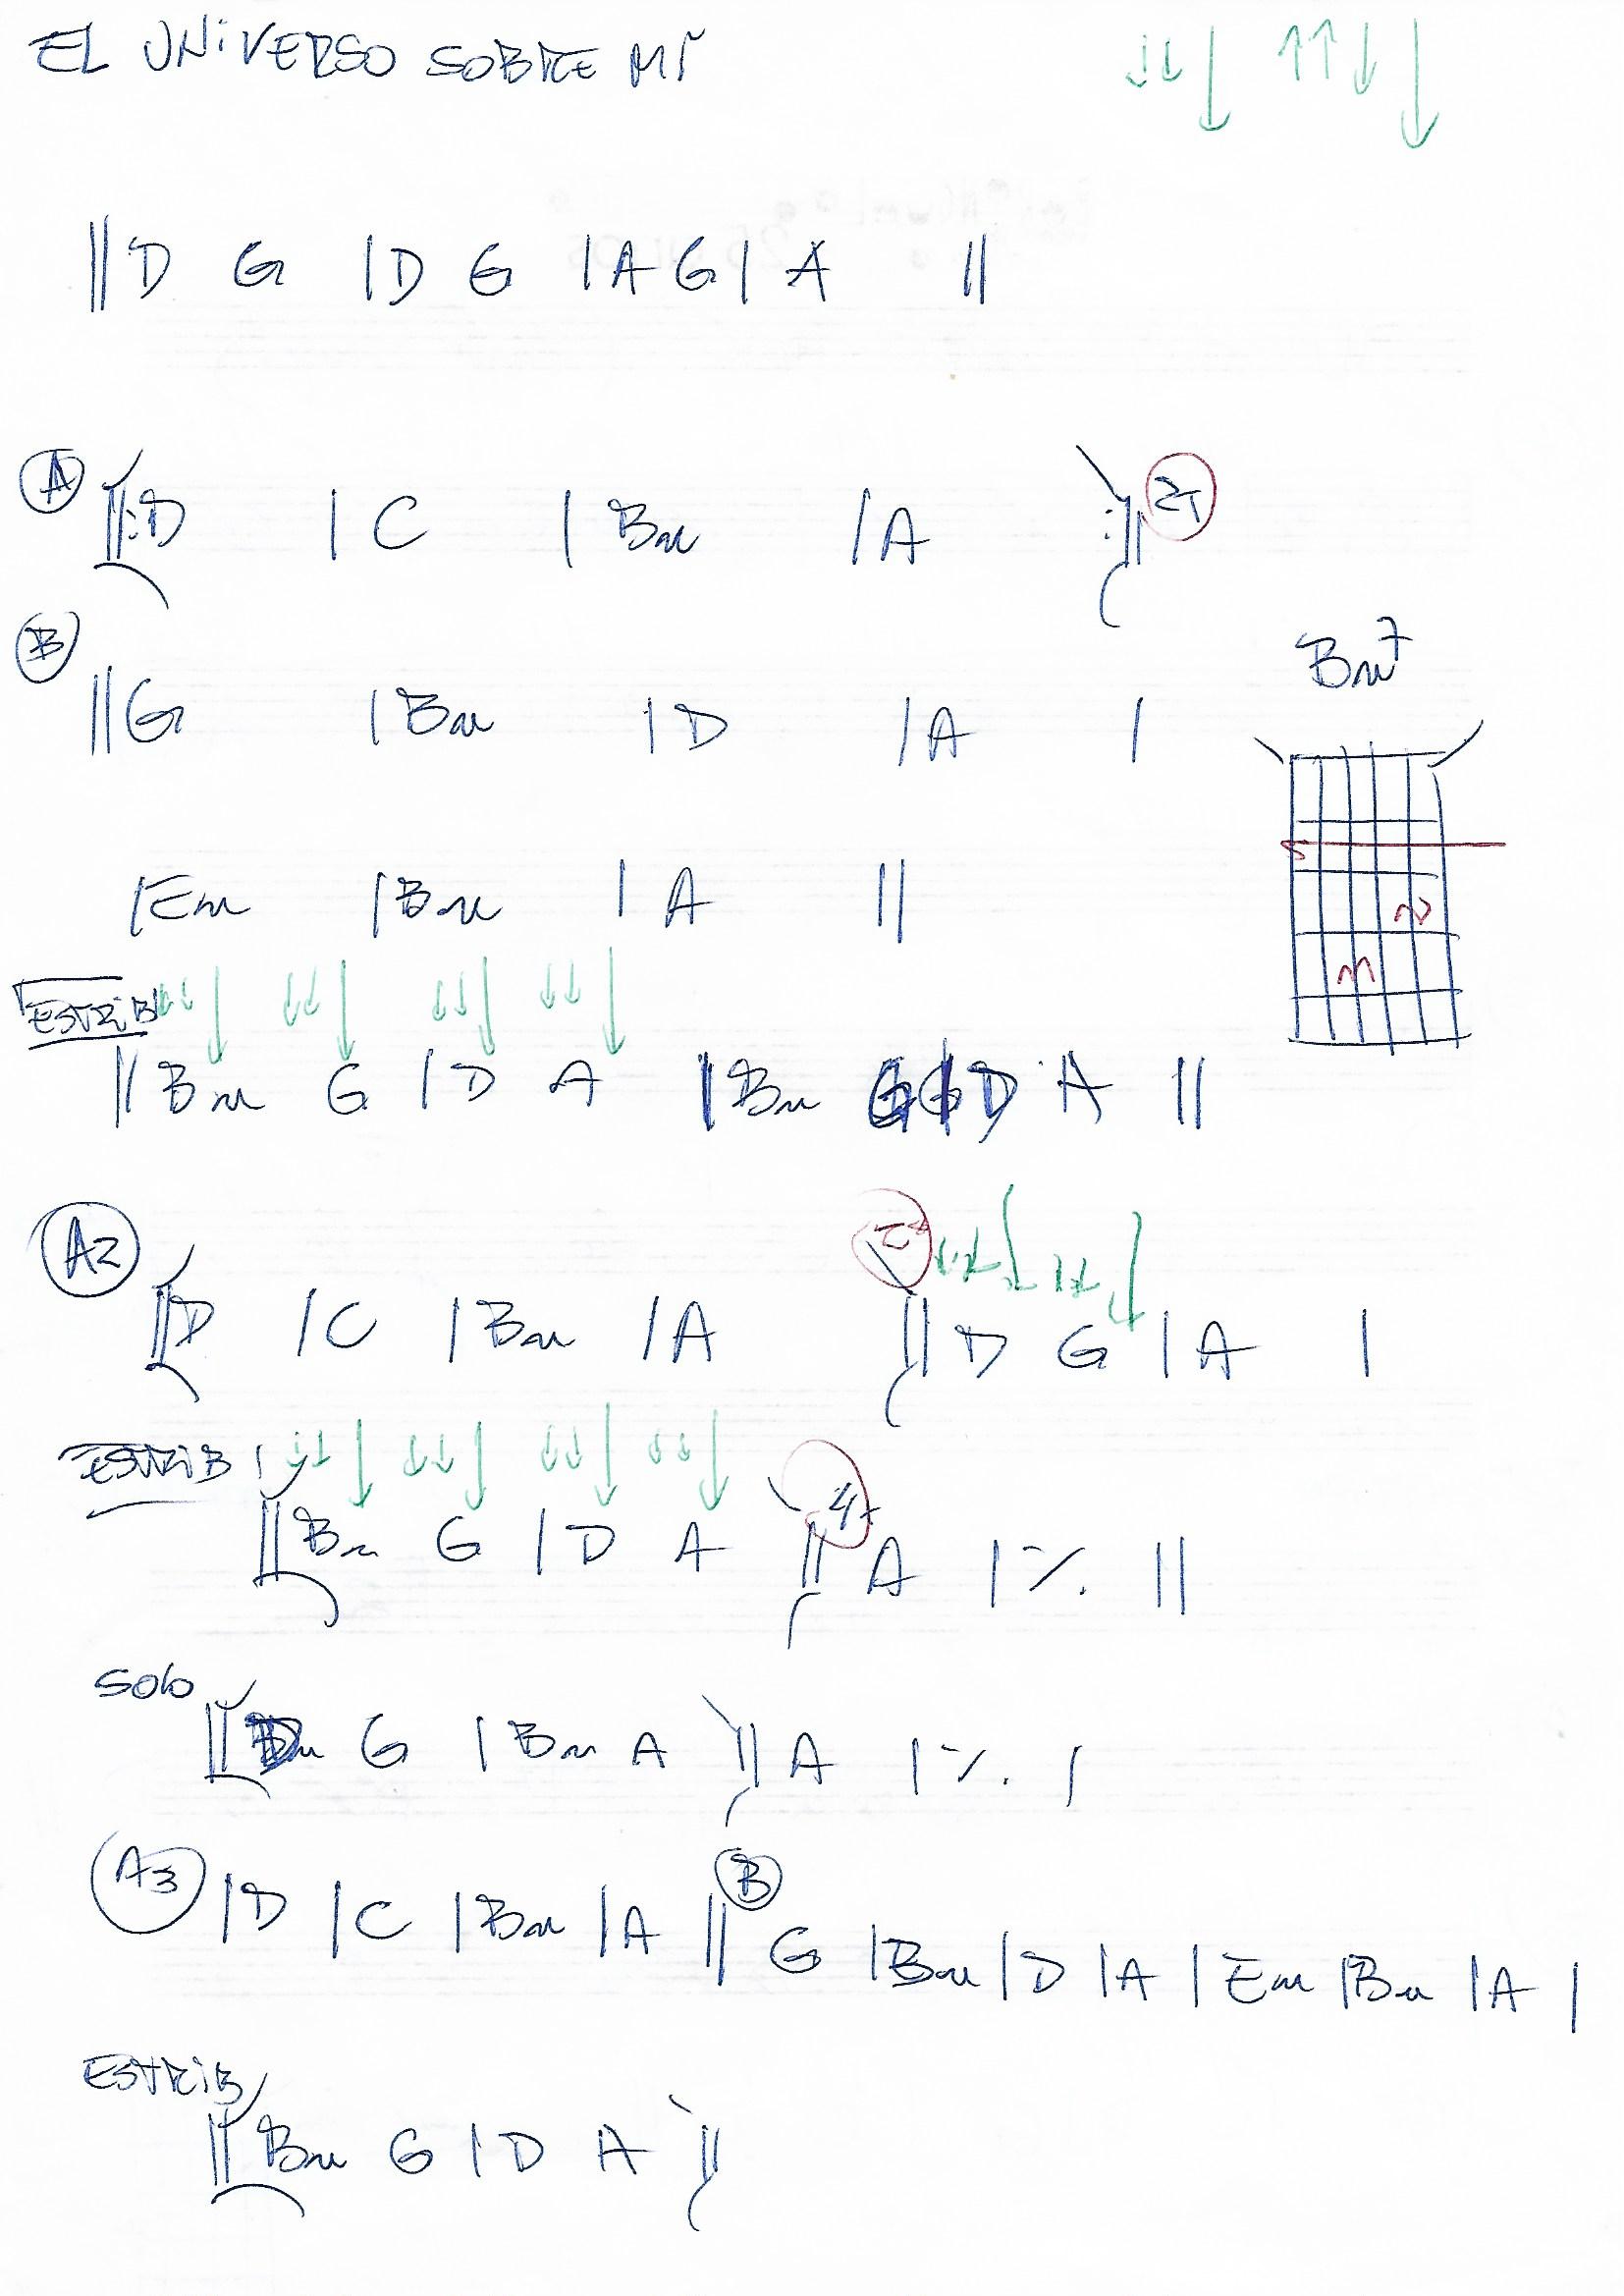 EL UNIVERSO SOBRE MÍ
|| D G | D G | A G | A ||
A
||: D | C | Bm | A :|| 2T
B
|| G | Bm | D | A |
Bm7
| Em | Bm | A ||
ESTRIB
|| Bm G | D A | Bm G | D A ||
A2
|| D | C | Bm | A || D G | A |
ESTRIB
|| Bm G | D A || 4T A | ٪ ||
SOLO
|| Bm G | Bm A || A | ٪ |
A3 | D | C | Bm | A || B G | Bm | D | A | Em | Bm | A |
ESTRIB
|| Bm G | D A ||